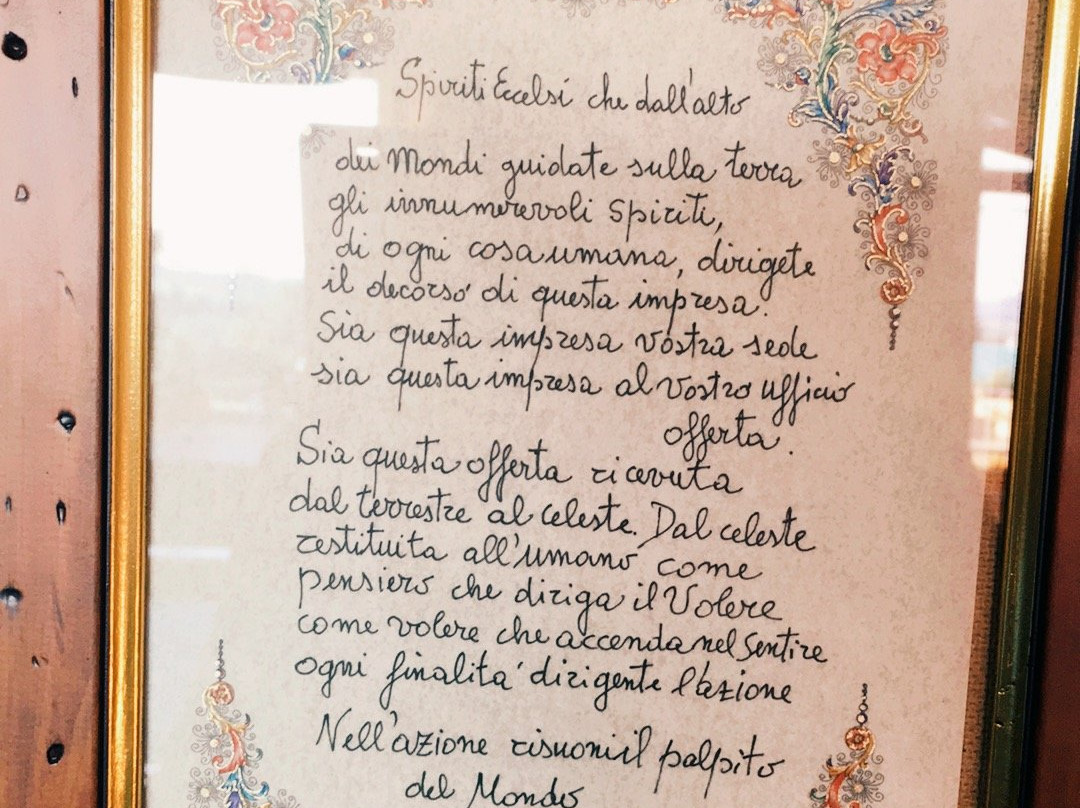 Spiriti Eccelsi che dall'alto
dei Mondi guidate sulla terra
gli innumerevoli spiriti,
di ogni cosa umana, dirigete
il decorso di questa impresa.
Sia questa impresa vostra sede
sia questa impresa al vostro ufficio
offerta.
Sia questa offerta ricevuta
dal terrestre al celeste. Dal celeste
restituita all'umano come
pensiero che diriga il Volere
come volere che accenda nel Sentire
ogni finalità dirigente l'azione
Nell'azione risuoni il palpito
del Mondo